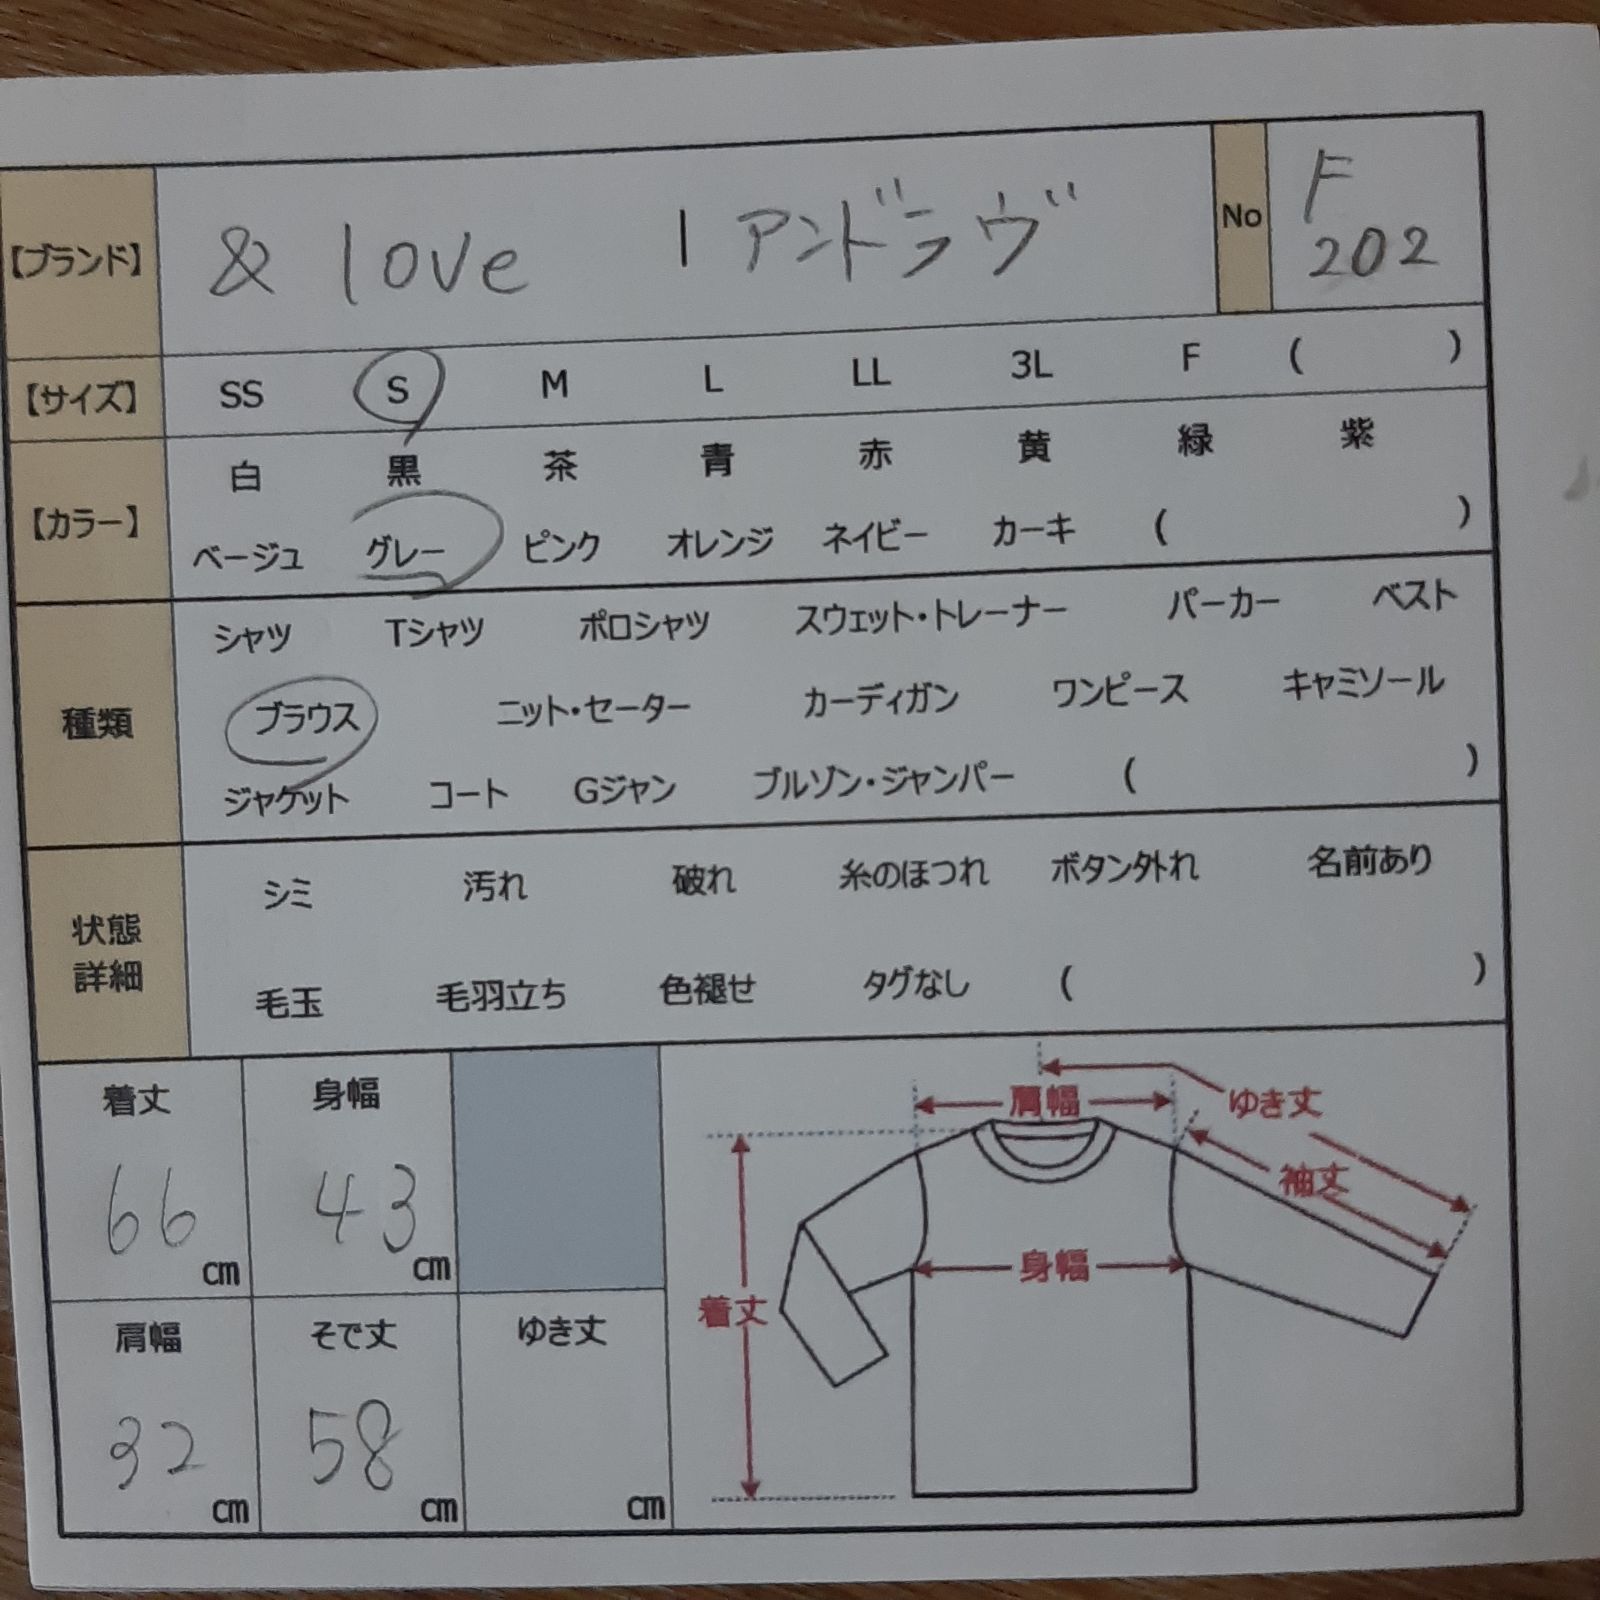 【ブランド】 & love | アンドラヴ No F 202
【サイズ】 SS S M L LL 3L F ( )
【カラー】 白 黒 茶 青 赤 黄 緑 紫
ベージュ グレー ピンク オレンジ ネイビー カーキ ( )
種類 シャツ Tシャツ ポロシャツ スウェット・トレーナー パーカー ベスト
ブラウス ニット・セーター カーディガン ワンピース キャミソール
ジャケット コート Gジャン ブルゾン・ジャンパー ( )
状態
詳細
シミ 汚れ 破れ 糸のほつれ ボタン外れ 名前あり
毛玉 毛羽立ち 色褪せ タグなし ( )
着丈 身幅
66 cm 43 cm
肩幅 そで丈 ゆき丈
32 cm 58 cm cm
肩幅 ゆき丈
袖丈
身幅
着丈